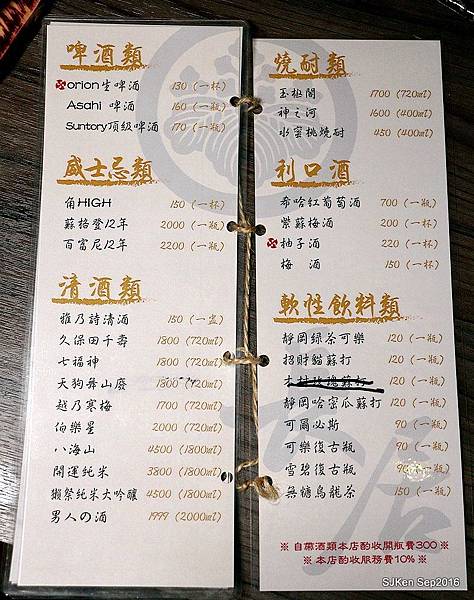 啤酒類
orion生啤酒 130 (一杯)
Asahi 啤酒 160 (一瓶)
Suntory頂級啤酒 170 (一瓶)
威士忌類
角HIGH 150 (一杯)
蘇格登12年 2000 (一瓶)
百富尼12年 2200 (一瓶)
清酒類
雅乃詩清酒 150 (一盅)
久保田千壽 1800 (720ml)
七福神 1800 (720ml)
天狗舞山廢 1800 (720ml)
越乃寒梅 1700 (720ml)
伯樂星 2000 (720ml)
八海山 4500 (1800ml)
開運純米 3800 (1800ml)
獺祭純米大吟釀 4500 (1800ml)
男人の酒 1999 (2000ml)
燒酎類
玉極閣 1700 (720ml)
神之河 1600 (400ml)
水蜜桃燒酎 450 (400ml)
利口酒
希哈紅葡萄酒 700 (一瓶)
紫蘇梅酒 200 (一杯)
柚子酒 220 (一杯)
梅 酒 150 (一杯)
軟性飲料類
靜岡綠茶可樂 120 (一瓶)
招財貓蘇打 120 (一瓶)
蘇打 120 (一瓶)
靜岡哈密瓜蘇打 120 (一瓶)
可爾必斯 90 (一瓶)
可樂復古瓶 90 (一瓶)
雪碧復古瓶 90 (一瓶)
無糖烏龍茶 150 (一瓶)
※ 自帶酒類本店酌收開瓶費300 ※
※ 本店酌收服務費10% ※
店
SJKen Sep2016